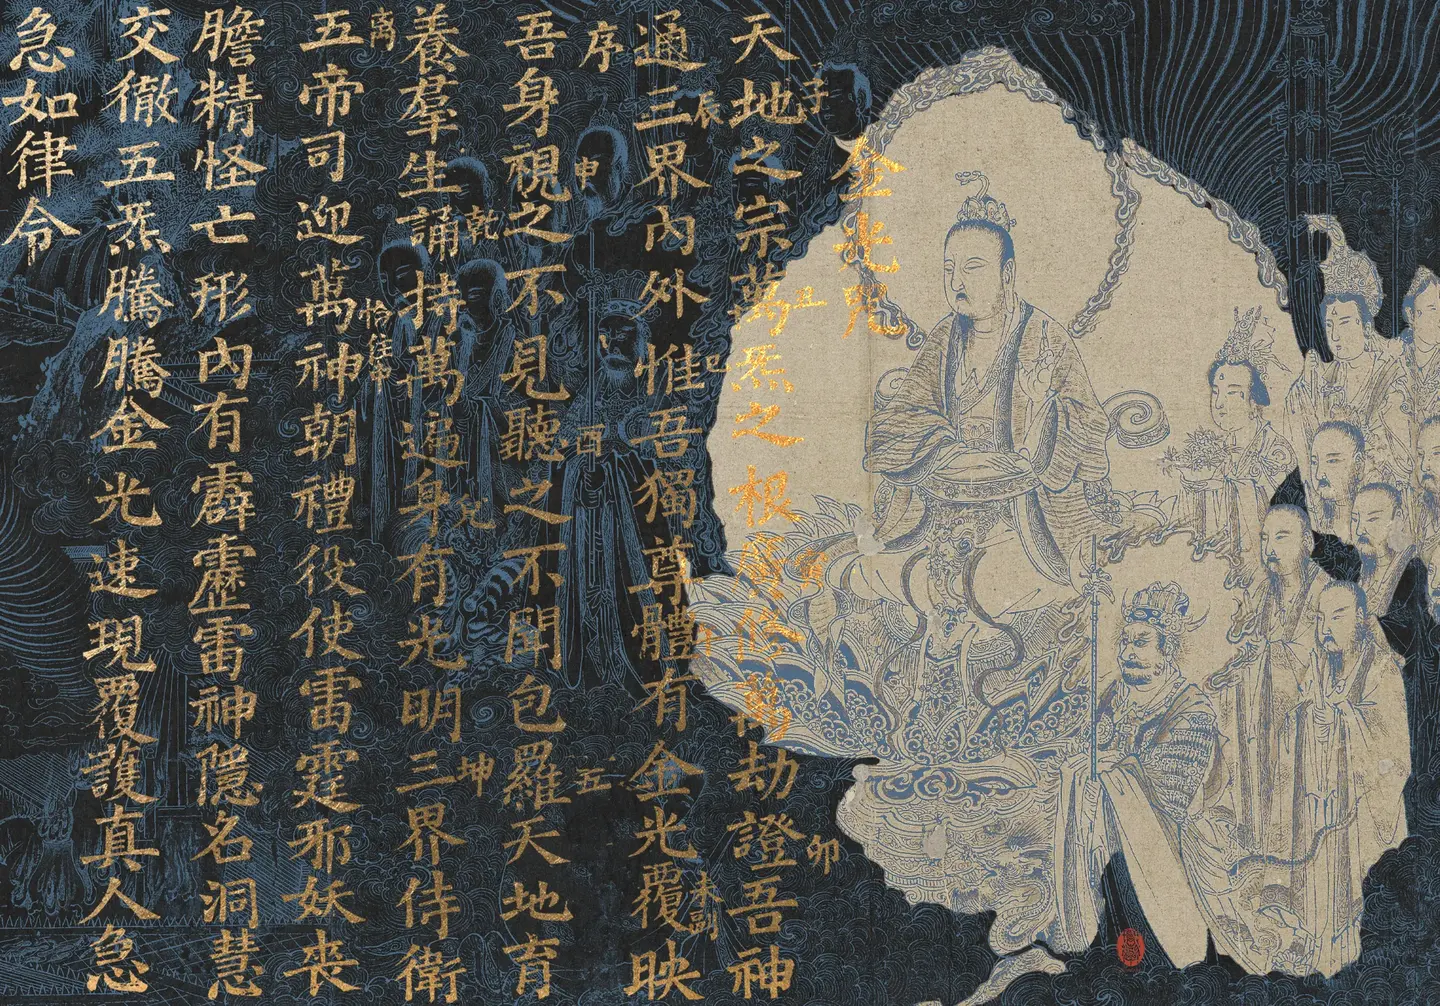 金光咒
天地之宗萬炁之根廣修萬劫證吾神
子
丑
寅
卯
通三界內外惟吾獨尊體有金光覆映
辰
巳
吾身視之不見聽之不聞包羅天地育
序
申
酉
五
養羣生誦持萬遍身有光明三界侍衛
乾
兌
坤
五帝司迎萬神朝禮役使雷霆邪妖喪
离
膽精怪亡形內有霹靂雷神隱名洞慧
交徹五炁騰騰金光速現覆護真人急
急如律令